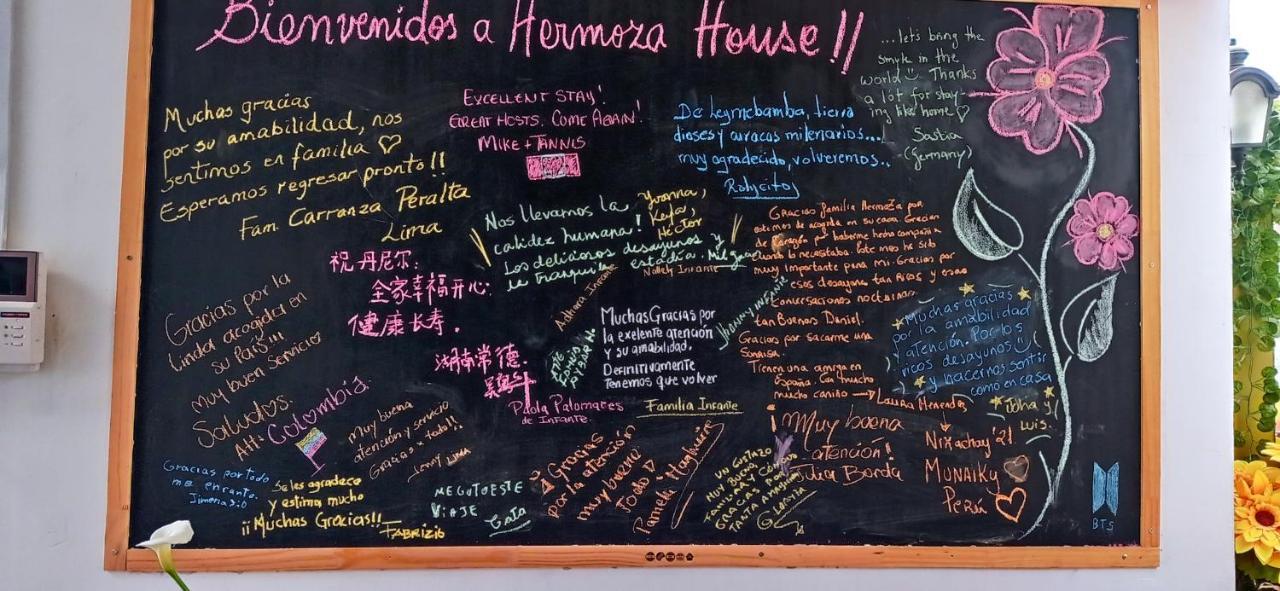 Bienvenidos a Hermoza House!!
Muchas gracias
por su amabilidad, nos
sentimos en familia ♡
Esperamos regresar pronto!!
Fam. Carranza Peralta
Lima
EXCELLENT STAY!
GREAT HOSTS. COME AGAIN!
MIKE + TANNIS
De Leymebamba, tierra
dioses y curacas milenarios...
muy agradecido, volveremos..
Rabycitos
...let's bring the
smyle in the
world Thanks
a lot for stay-
ing like home ♡
Saskia
(Germany)
Nos llevamos la
calidez humana!
Los deliciosos desayunos y
la tranquila estadía. Mil
Yvonna,
Keyla,
Héctor
祝丹尼尔:
全家幸福开心.
健康长寿.
湖南常德.
Gracias familia Hermoza por
de corazón por haberme hecho compañía
cuando lo necesitaba. Este mes ha sido
muy importante para mi. Gracias por
esos desayunos tan ricos y esas
conversaciones nocturnas
tan buenas Daniel.
Gracias por sacarme una
sonrisa.
Tienen una amiga en
España. Con mucho
mucho cariño → Laura Menendes
Gracias por la
linda acogida en
su País!!!
muy buen servicio
Saludos.
Att: Colombia.
Nolely Infante
Jhanny Infante
Muchas Gracias por
la exelente atención
y su amabilidad,
Definitivamente
Tenemos que volver
Paola Palomares
de Infante.
Familia Infante
Muchas gracias
por la amabilidad
y atención. Por los
ricos desayunos
y hacernos sentir
como en casa
Joha y
Luis.
Muy buena
atención y servicio
Gracias x todo!!
Muy buena
atención!
Julia Borda
Nixachay '21
MUNAIKY
Perú
BTS
Gracias por todo
me encanto.
Jimena :D
Se les agradece
y estima mucho
¡¡Muchas Gracias!!
FABRIZIO
ME GUTO ESTE
VIAJE
Gracias
por la atención
muy bueno
todo
Pamela
UN GUSTAZO
MUY BUENA
FAMILIA Y CÓMODO
GRACIAS POR
TANTA AMABILIDAD